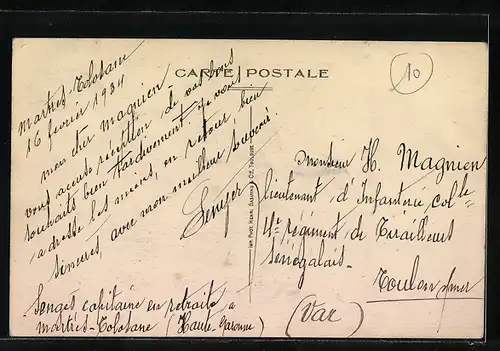 CARTE POSTALE
10
Martres-Tolosane
16 février 1934
mon cher Magnien
vous accuse réception de vos bons
souhaits bien tardivement, je vous
adresse les miens, en retour, bien
sincères, avec mon meilleur souvenir.
Senges capitaine en retraite à
Martres-Tolosane (Haute-Garonne)
Monsieur H. Magnien
lieutenant, d'Infanterie, col.le
4e régiment de Tirailleurs
Sénégalais-
Toulon s/mer
(Var)